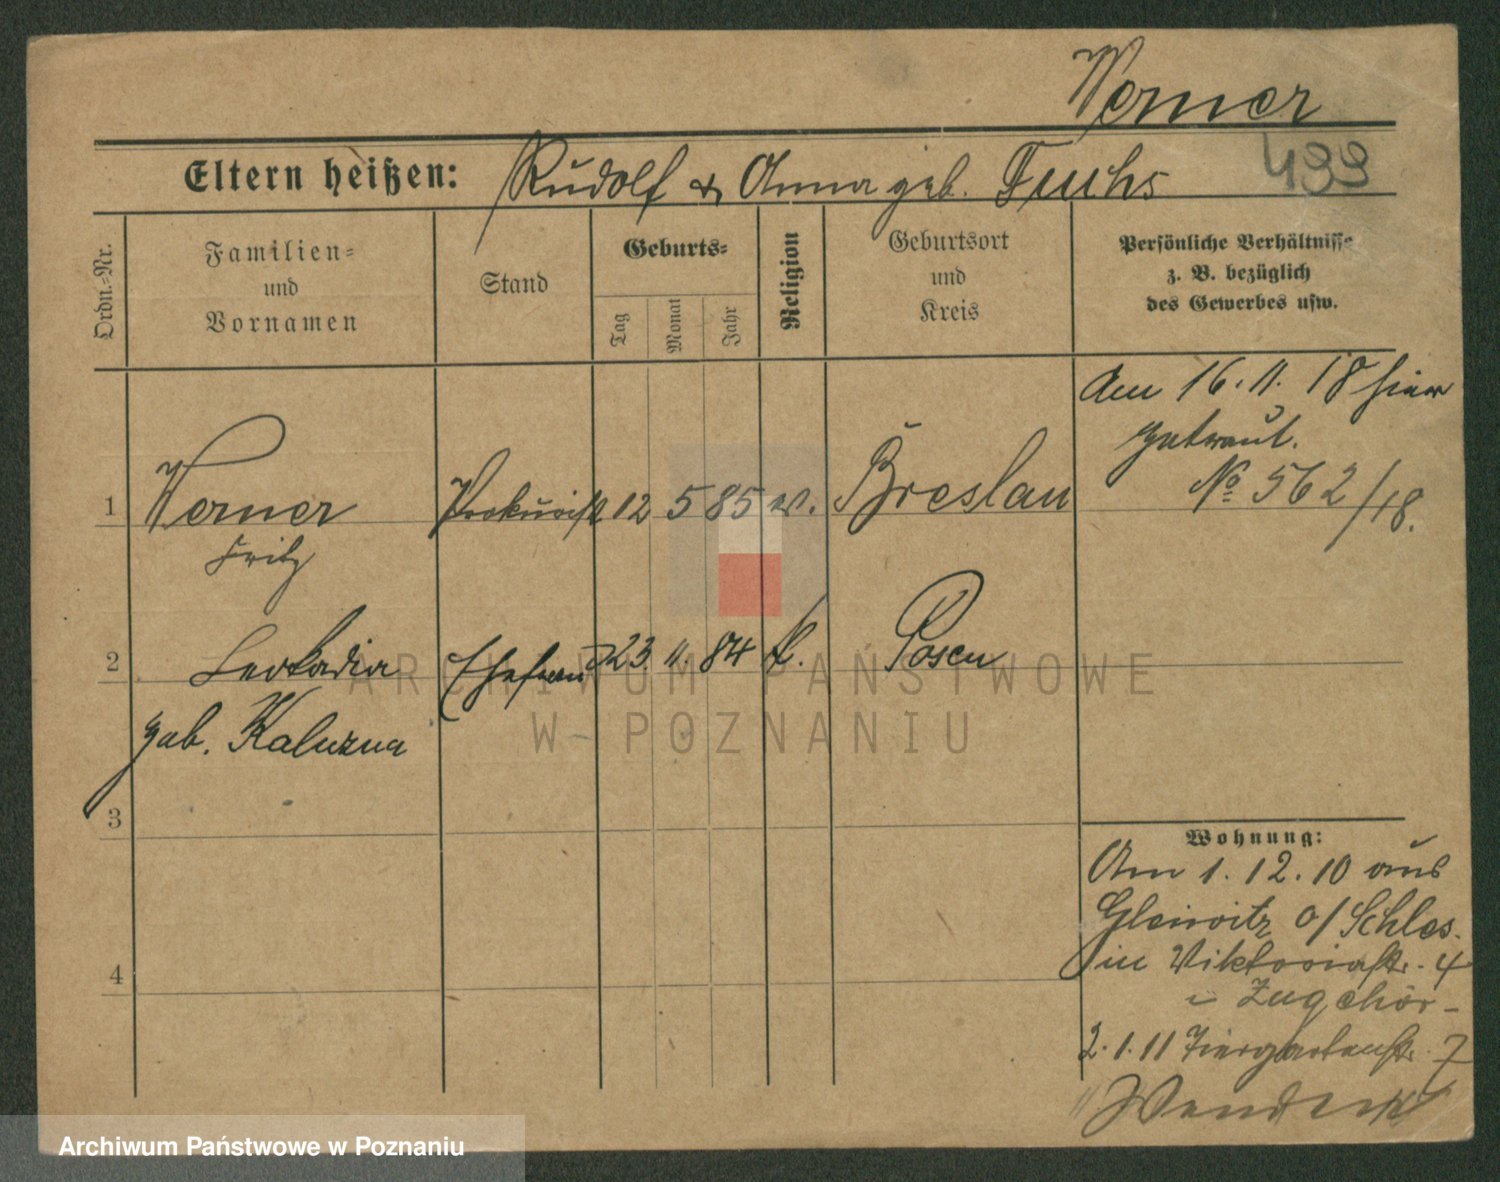 Werner
499
Eltern heißen: Rudolf & Anna geb. Fuchs
Ordn.-Nr.
Familien-
und
Vornamen
Stand
Geburts-
Tag
Monat
Jahr
Religion
Geburtsort
und
Kreis
Persönliche Verhältnisse
z. B. bezüglich
des Gewerbes usw.
Am 16. 11. 18 hier
getraut.
No 562/18.
1 Werner Prokurist 12 5 85 Breslau
Fritz
2 Leokadia Ehefrau 23. 11. 84 k. Posen
geb. Kaluzna
3
4
Wohnung:
Am 1. 12. 10 aus
Gleiwitz o/Schles.
in Viktoriastr. 4
2. 1. 11 Tiergartenstr. 7
ARCHIWUM PAŃSTWOWE
W POZNANIU
Archiwum Państwowe w Poznaniu